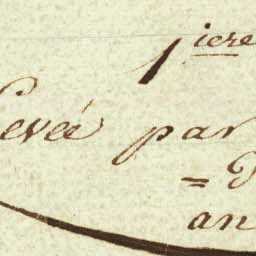 1iere
Levée par
=
an